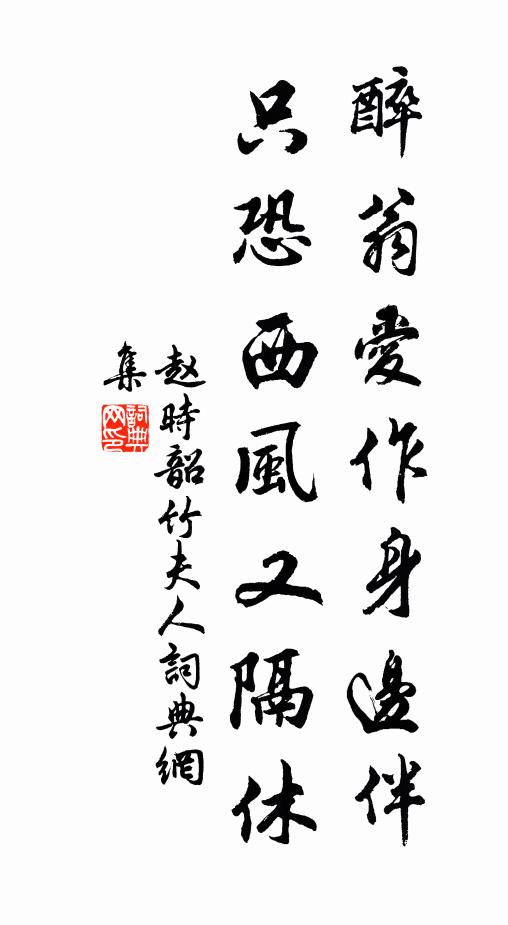 醉翁愛作身邊伴
只恐西風又隔休
赵時韶竹夫人詞典網
集
詞典
网印